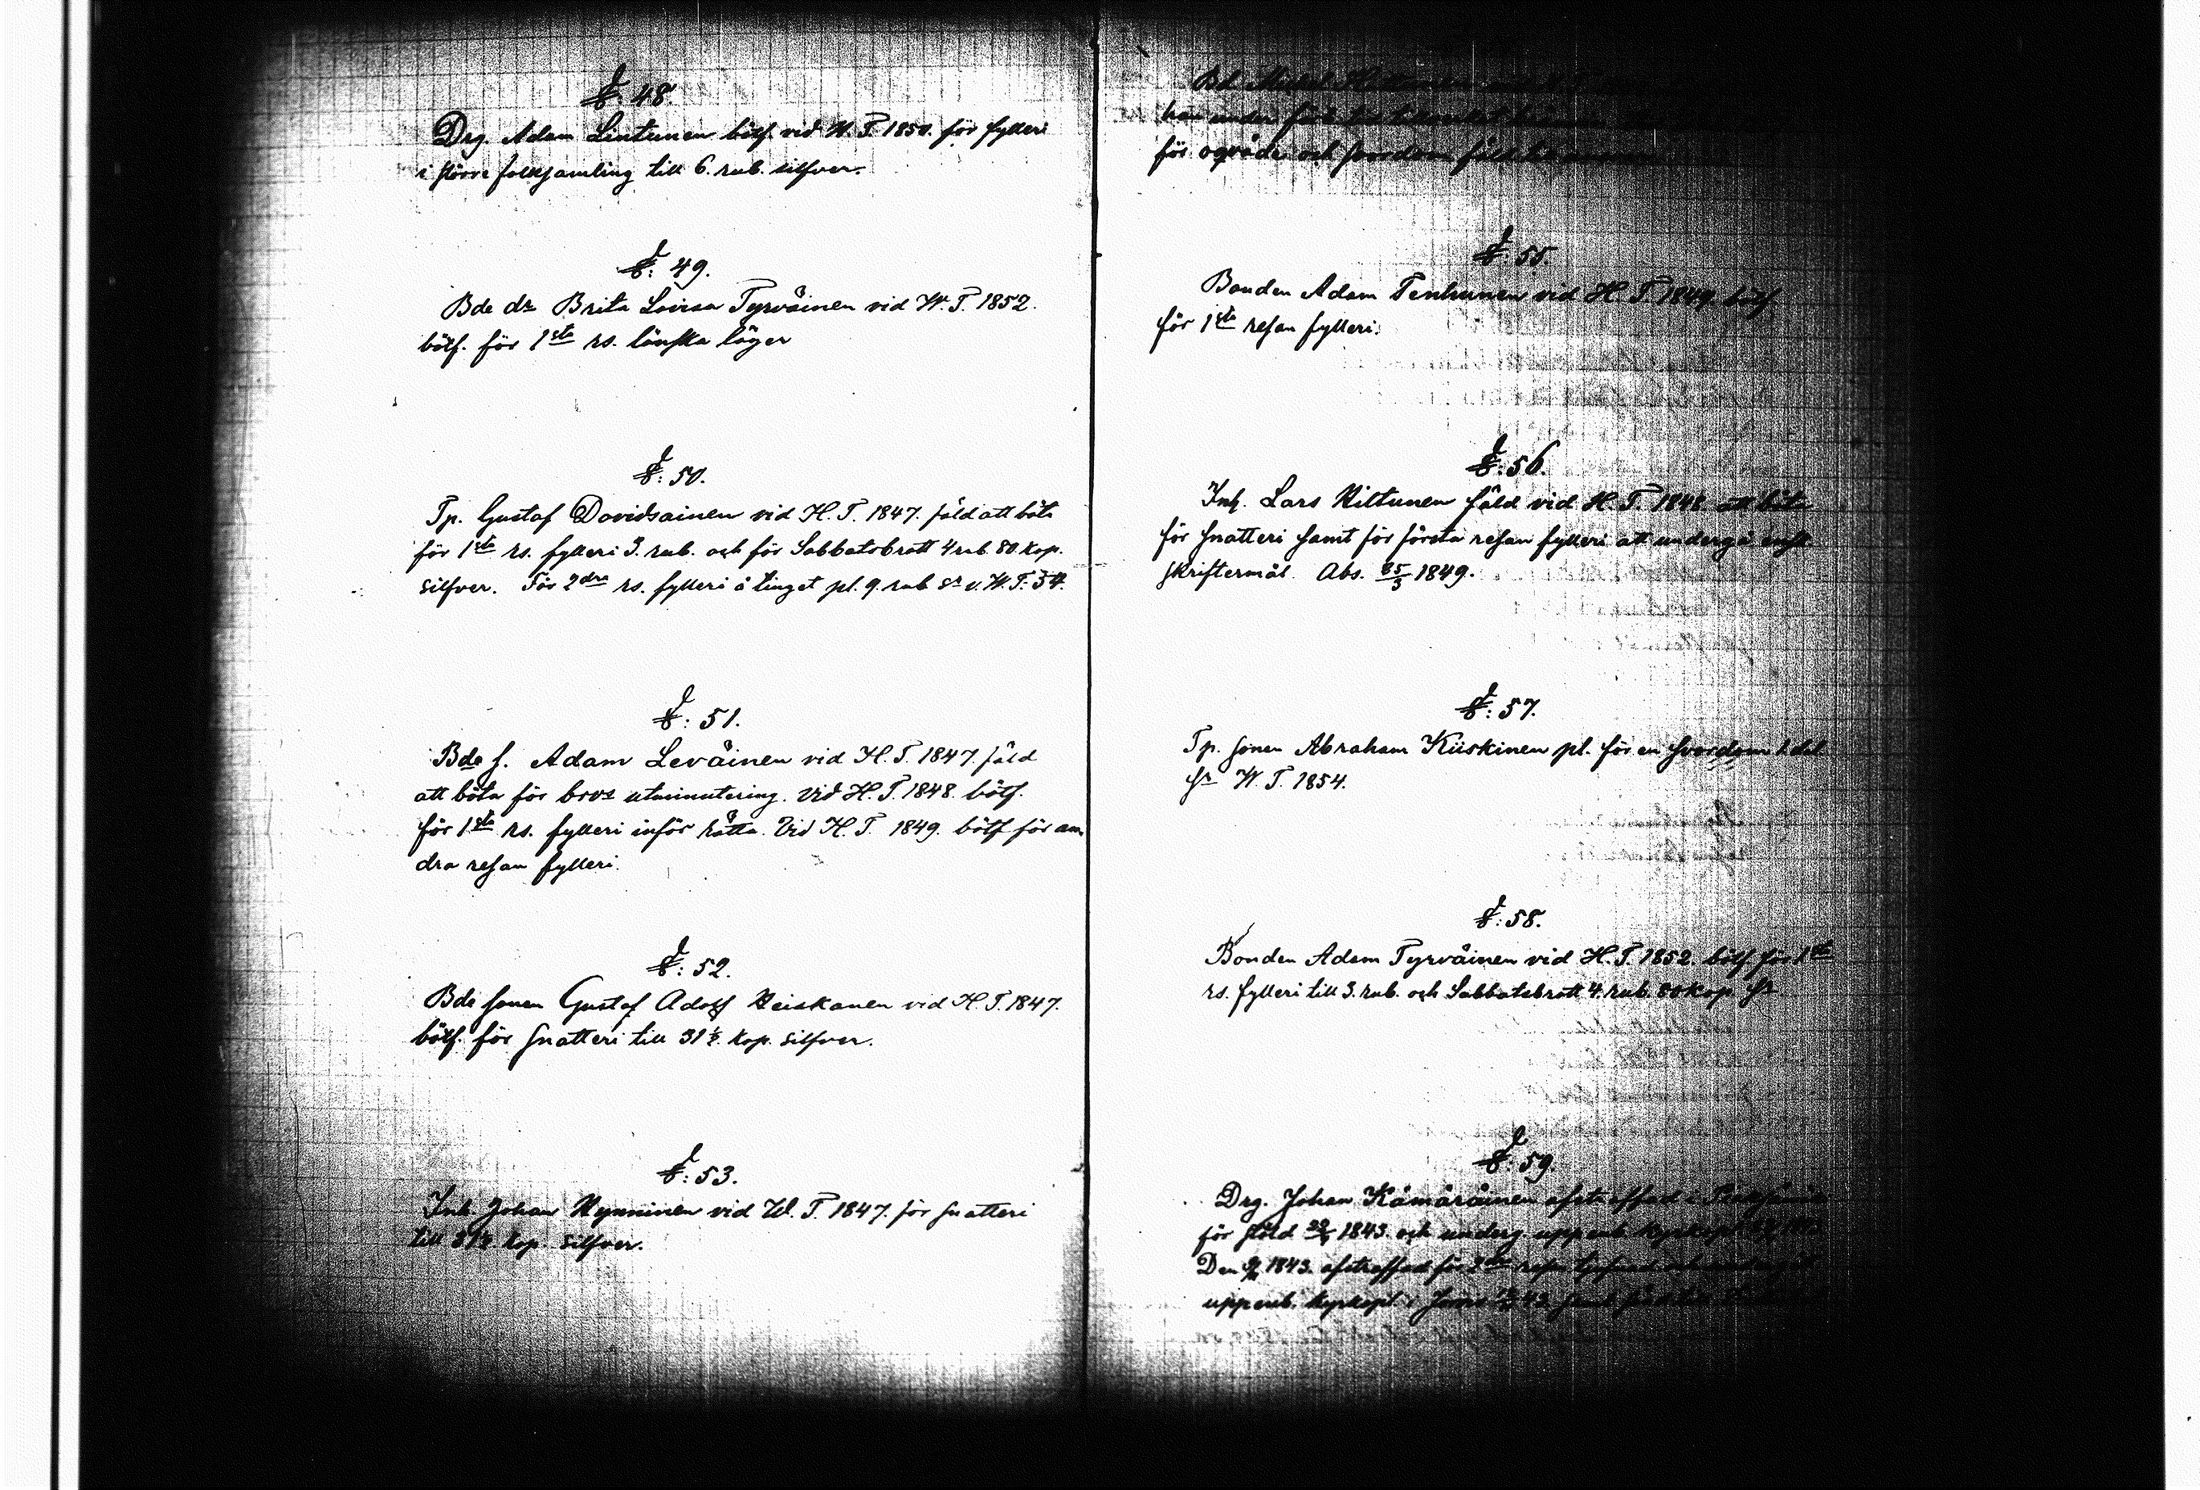 §. 48.
Drg. Adam Lintunen bötf. vid W. T. 1850. för fylleri
i större folksamling till 6. rub. silfver.
§. 49.
Bde dr Brita Lovisa Tyrväinen vid W. T. 1852.
bötf. för 1sta rs. lönska läger
§. 50.
Tp. Gustaf Davidsainen vid H. T. 1847. fäld att böta
för 1sta rs. fylleri 3. rub. och för Sabbatsbrott 4 rub 80. kop.
silfver. För 2dra rs. fylleri å tinget pl. 9. rub sr v. W. T. 54.
§: 51.
Bde s. Adam Leväinen vid H. T. 1847. fäld
att böta för brvs utminutering. Vid H. T. 1848. bötf.
för 1sta rs. fylleri inför rätta. Vid H. T. 1849. bötf för an-
dra resan fylleri.
§: 52.
Bde sonen Gustaf Adolf Heiskanen vid H. T. 1847.
bötf. för snatteri till 31 ½. kop. silfver.
§: 53.
Inh. Johan Hynninen vid W. T. 1847. för snatteri
till 31 ½. kop. silfver.
Bd.
han under
för oqväde och svordom
§. 55.
Bonden Adam Tenhunen vid H. T. 1849. bötf
för 1sta resan fylleri.
§: 56.
Inh. Lars Hiltunen fäld vid H. T. 1848. att böta
för snatteri samt för första resan fylleri att undergå ensk.
skriftermål. Abs. 25/3 1849.
§: 57.
Tp. sonen Abraham Kiiskinen pl. för en svordom
sr W. T. 1854.
§: 58.
Bonden Adam Tyrväinen vid H. T. 1852. bötf. för 1sta
rs. fylleri till 3. rub. och Sabbatsbrott 4. rub. 80 kop. sr
§: 59.
Drg. Johan Kämäräinen afstraffad i
för stöld 1843. och underg. uppenb. kyrkopl.
Den 1843. afstraffad för 2dra resan
uppenb. kyrkopl. i